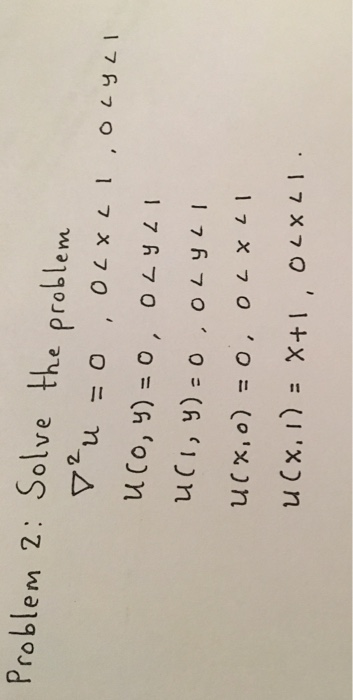 Problem 2: Solve the problem
∇²u = 0, 0<x<1, 0<y<1
u(0,y)=0, 0<y<1
u(1,y)=0, 0<y<1
u(x,0)=0, 0<x<1
u(x,1)=x+1, 0<x<1.